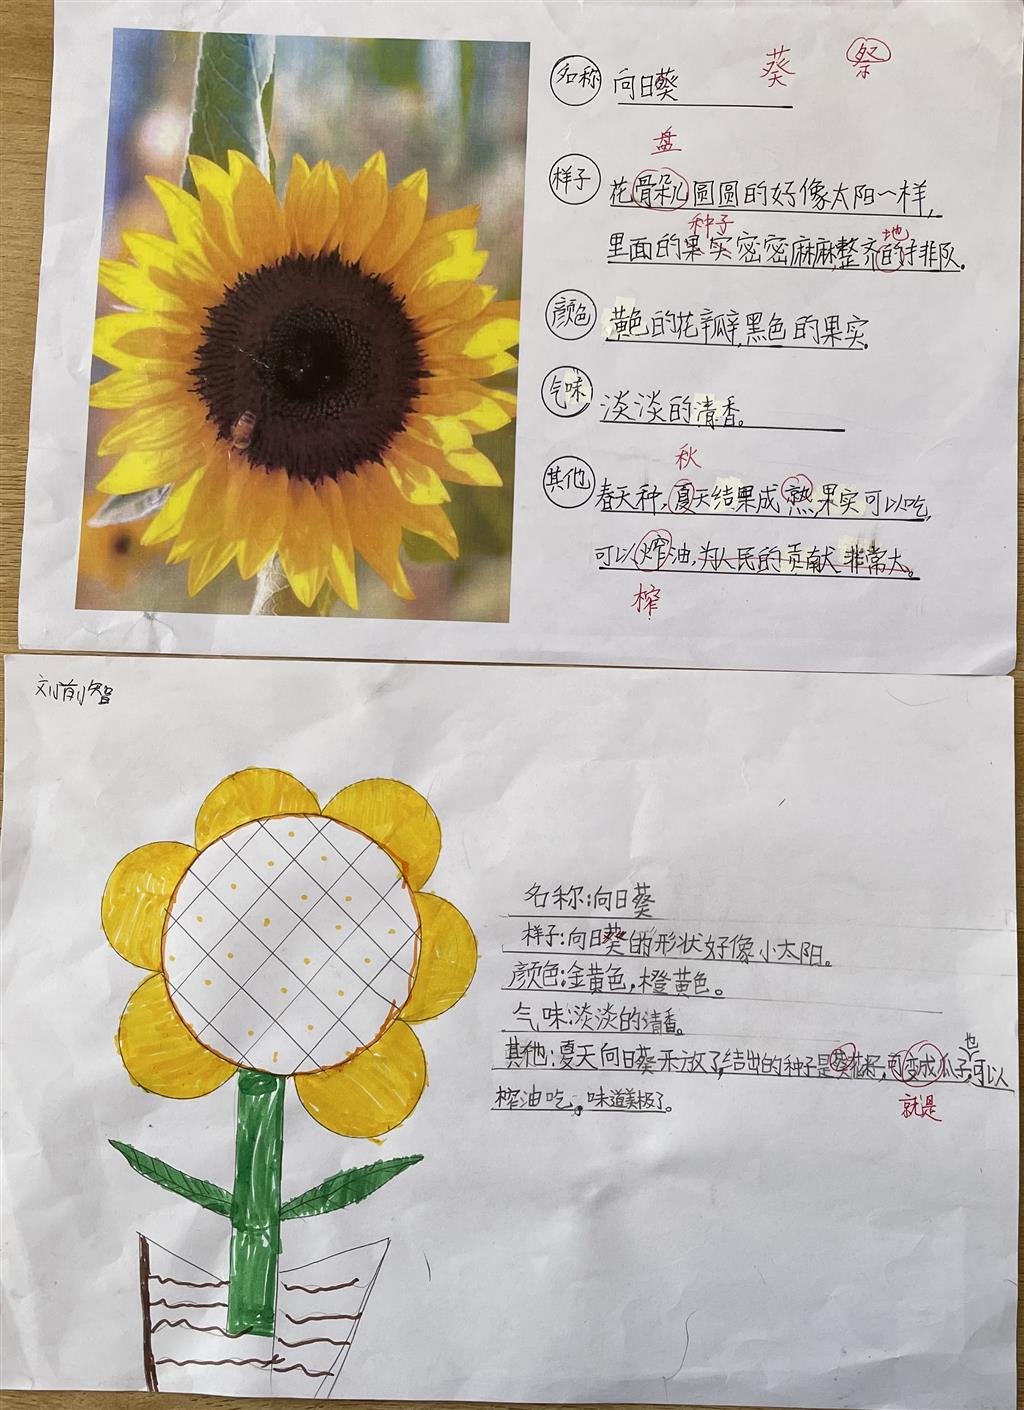 葵 祭
名称 向日葵
盘
样子 花骨朵儿圆圆的好像太阳一样,
种子 地
里面的果实密密麻麻,整齐的排队.
颜色 黄色的花瓣,黑色的果实.
气味 淡淡的清香。
秋
其他 春天种,夏天结果成熟,果实可以吃,
可以炸油,为人民的贡献非常大。
榨
名称:向日葵
样子:向日葵的形状好像小太阳。
颜色:金黄色,橙黄色。
气味:淡淡的清香。
也
其他:夏天向日葵开放了,结出的种子是葵花籽,变成瓜子,可以
就是
榨油吃,味道美极了。